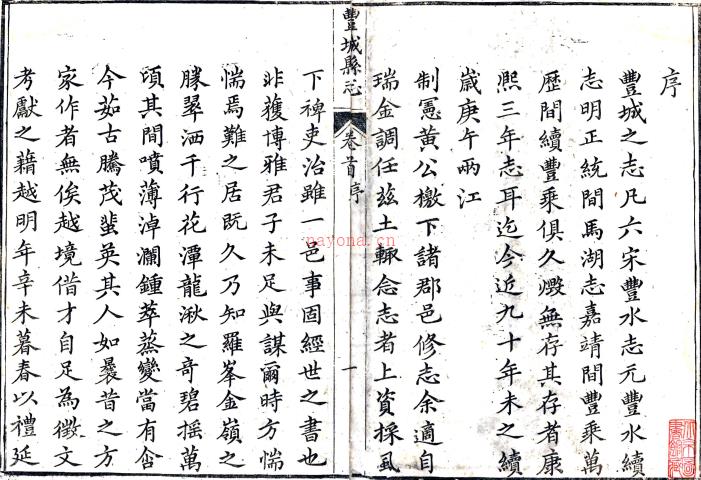 序
豐城之志凡六宋豐水志元豐水續
志明正統間馬湖志嘉靖間豐乘萬
歷間續豐乘俱久燬無存其存者康
熙三年志耳迄今近九十年未之續
歲庚午兩江
制憲黃公檄下諸郡邑修志余適自
瑞金調任茲土輒念志者上資採風
豐城縣志
卷首序
一
下裨吏治雖一邑事固經世之書也
非獲博雅君子未足與謀爾時方惴
惴焉難之居既久乃知羅峯金嶺之
勝翠洒千行花潭龍湫之奇碧搖萬
頃其間噴薄淖瀾鍾萃蒸變當有含
今茹古騰茂蜚英其人如曩昔之方
家作者無俟越境借才自足為徵文
考獻之藉越明年辛未暮春以禮延
nayona.cn